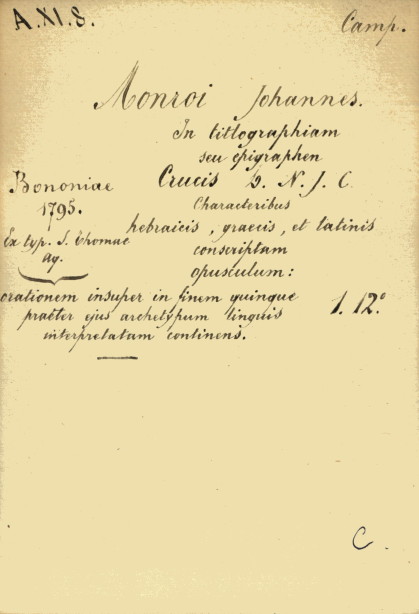 A.XI.8. Camp.
Monroi Johannes.
In titlographiam
seu epigraphen
Crucis D. N. J. C.
Bononiae
1795.
Ex typ. S. Thomae
aq.
Characteribus
hebraicis, graecis, et latinis
conscriptam
opusculum:
orationem insuper in finem quinque
praeter ejus archetypum linguis
interpretatam continens.
1. 12°
C.